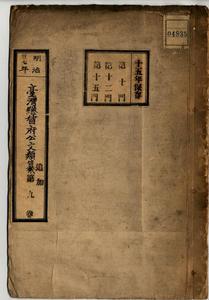 04935
十五年保存
第十門
第十二門
第十五門
明治
廿七年
臺灣總督府公文類纂
追加
第九卷